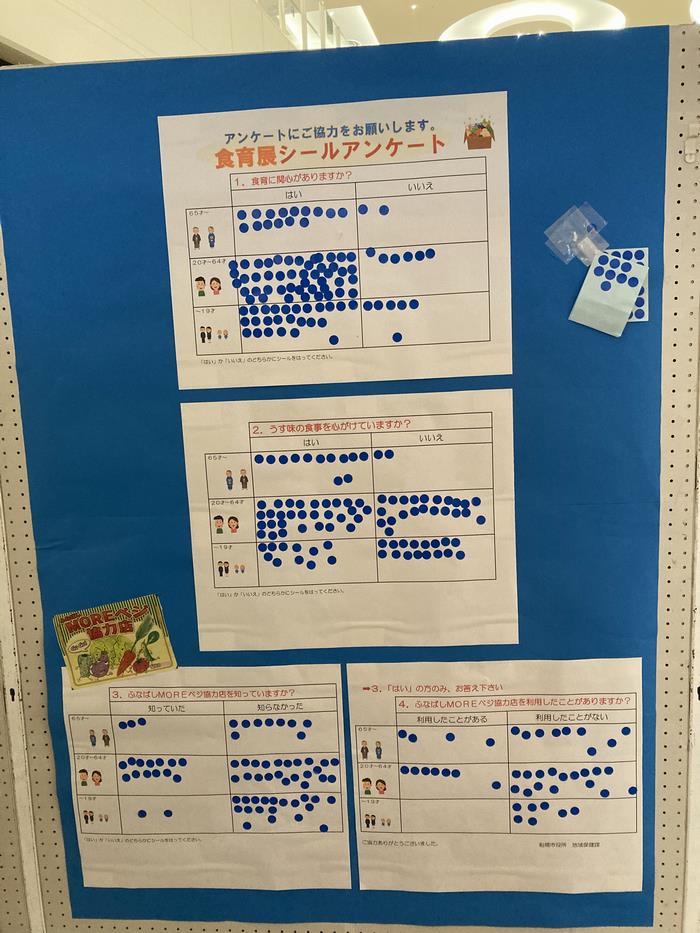 アンケートにご協力をお願いします。
食育展シールアンケート
1．食育に関心がありますか?
はい いいえ
65才~
20才~64才
~19才
「はい」か「いいえ」のどちらかにシールをはってください。
2．うす味の食事を心がけていますか?
はい いいえ
65才~
20才~64才
~19才
「はい」か「いいえ」のどちらかにシールをはってください。
MOREベジ
協力店
3．ふなばしMOREベジ協力店を知っていますか?
知っていた 知らなかった
65才~
20才~64才
~19才
「はい」か「いいえ」のどちらかにシールをはってください。
➡3．「はい」の方のみ、お答え下さい
4．ふなばしMOREベジ協力店を利用したことがありますか?
利用したことがある 利用したことがない
65才~
20才~64才
~19才
ご協力ありがとうございました。
船橋市役所 地域保健課